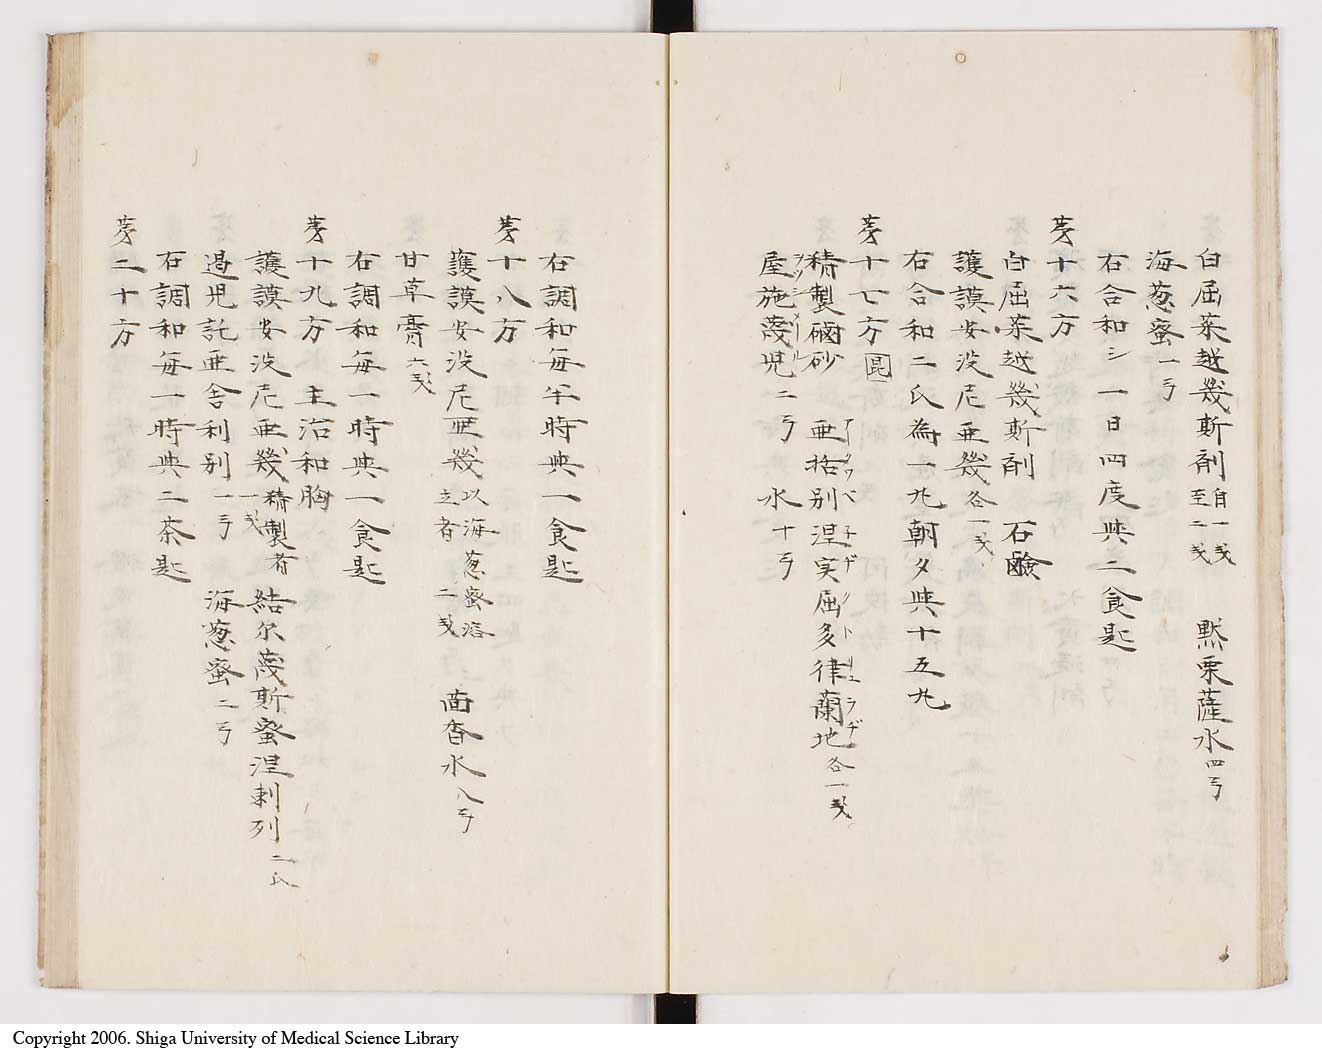 白屈菜越幾斯剤 自一戔至二戔 黙栗薩水四ㄢ
海葱蜜一ㄢ
右合和シ一日四度與二食匙
㐧十六方
白屈菜越幾斯剤 石鹸
護謨安没尼亜幾各一戔
右合和二氏為一丸朝夕與十五丸
㐧十七方 昆
精製硇砂 亜括別涅実屈多律蘭地各一戔
アークワベ子ヂクトリュラヂ
屋施蔑児二ㄢ 水十ㄢ
ヲヲシメール
右調和毎半時與一食匙
㐧十八方
護謨安没尼亜幾以海葱蜜溶之者二戔 茴香水八ㄢ
甘草膏六戔
右調和毎一時與一食匙
㐧十九方 主治和胸
護謨安没尼亜幾精製者一戔 結尓蔑斯蜜涅剌列二氏
過児託亜舎利別一ㄢ 海葱蜜二ㄢ
右調和毎一時與二茶匙
㐧二十方
Copyright 2006. Shiga University of Medical Science Library